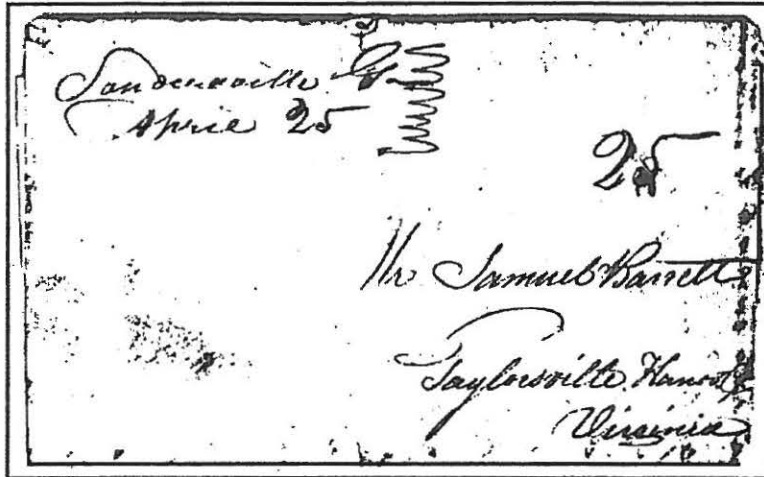 Sandersville
April 25
25
Mr Samuel Barrett
Taylorsville Hanover
Virginia